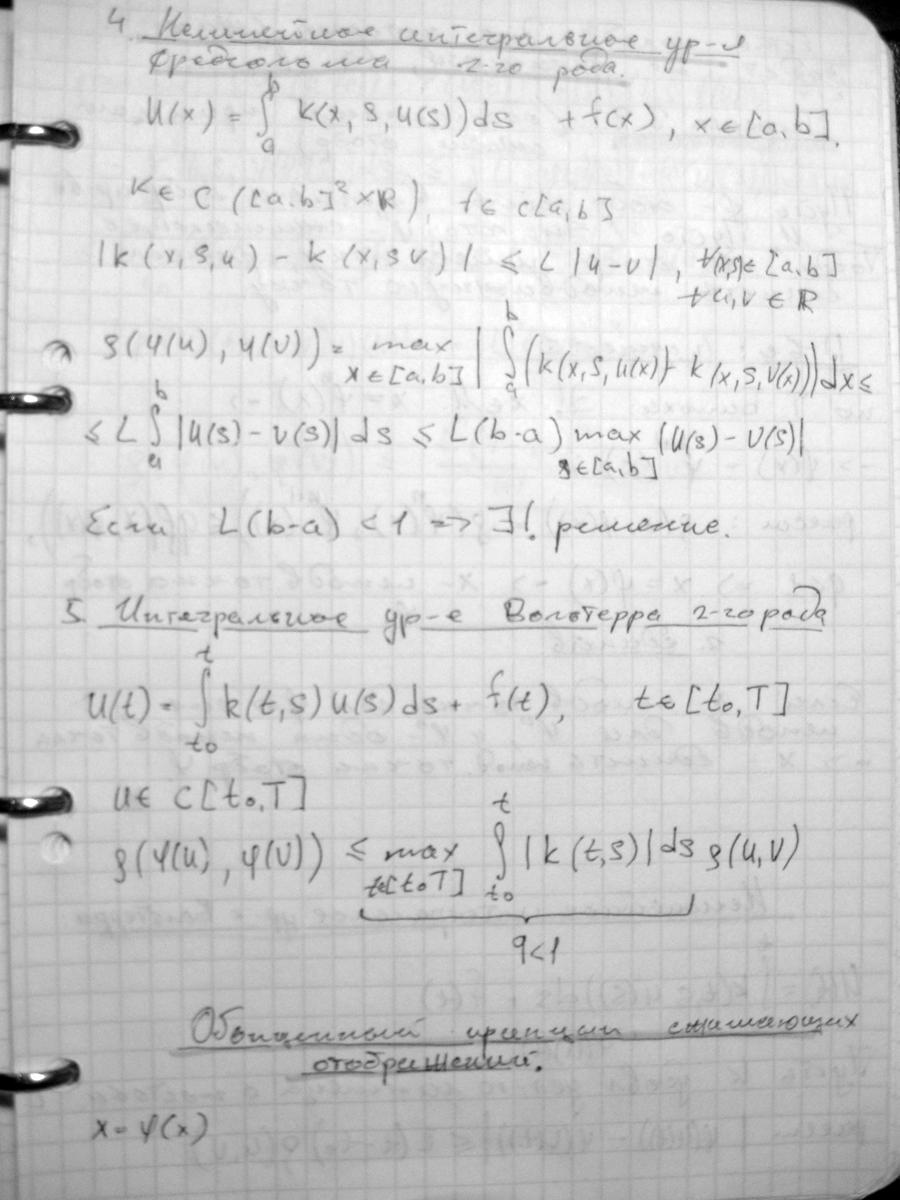 4. Нелинейное интегральное ур-я
Фредгольма 2-го рода.
U(x) = ∫_a^b k(x, s, u(s))ds + f(x), x ∈ [a, b].
K ∈ C([a,b]² × ℝ), f ∈ C[a,b]
|k(x, s, u) - k(x, s v)| ≤ L |u-v|, ∀(x,s) ∈ [a,b]
∀ u, v ∈ ℝ
ρ(φ(u), φ(v)) = max_{x∈[a,b]} | ∫_a^b (k(x, s, u(x)) - k(x, s, v(x))) dx ≤
≤ L ∫_a^b |u(s) - v(s)| ds ≤ L(b-a) max_{s∈[a,b]} |u(s) - v(s)|
Если L(b-a) < 1 => ∃! решение.
5. Интегральное ур-е Вольтерра 2-го рода
u(t) = ∫_{t₀}^t k(t,s) u(s) ds + f(t), t ∈ [t₀, T]
u ∈ C[t₀, T]
ρ(φ(u), φ(v)) ≤ max_{t∈[t₀T]} ∫_{t₀}^t |k(t,s)| ds ρ(u,v)
q<1
Обощенный принцип сжимающих
отображений.
x = φ(x)